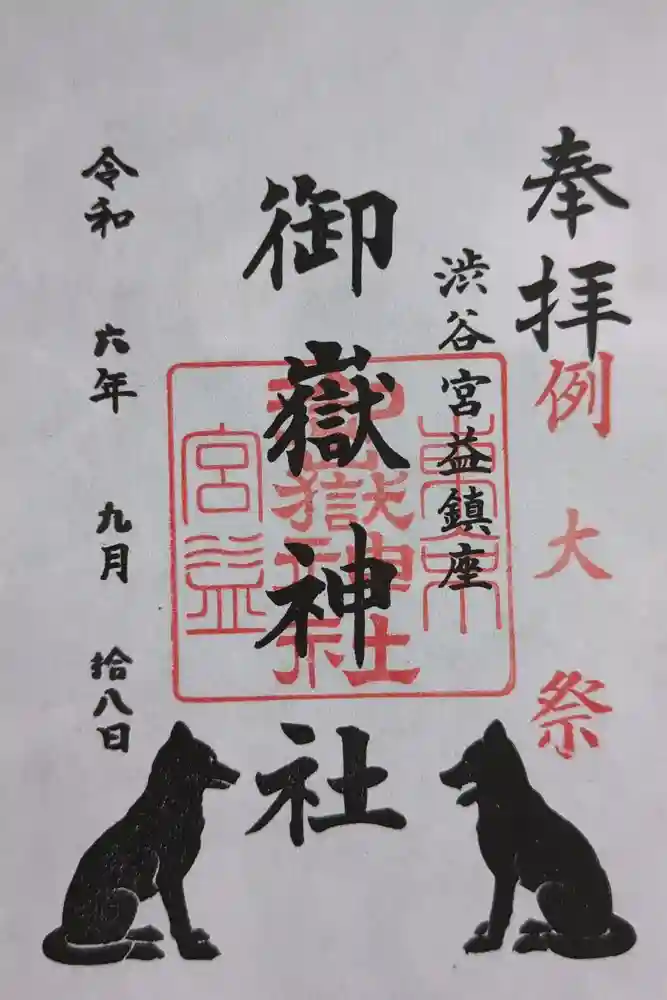 奉拝
例大祭
渋谷宮益鎮座
御嶽神社
令和 六年 九月 拾八日
東京
御嶽神社
宮益